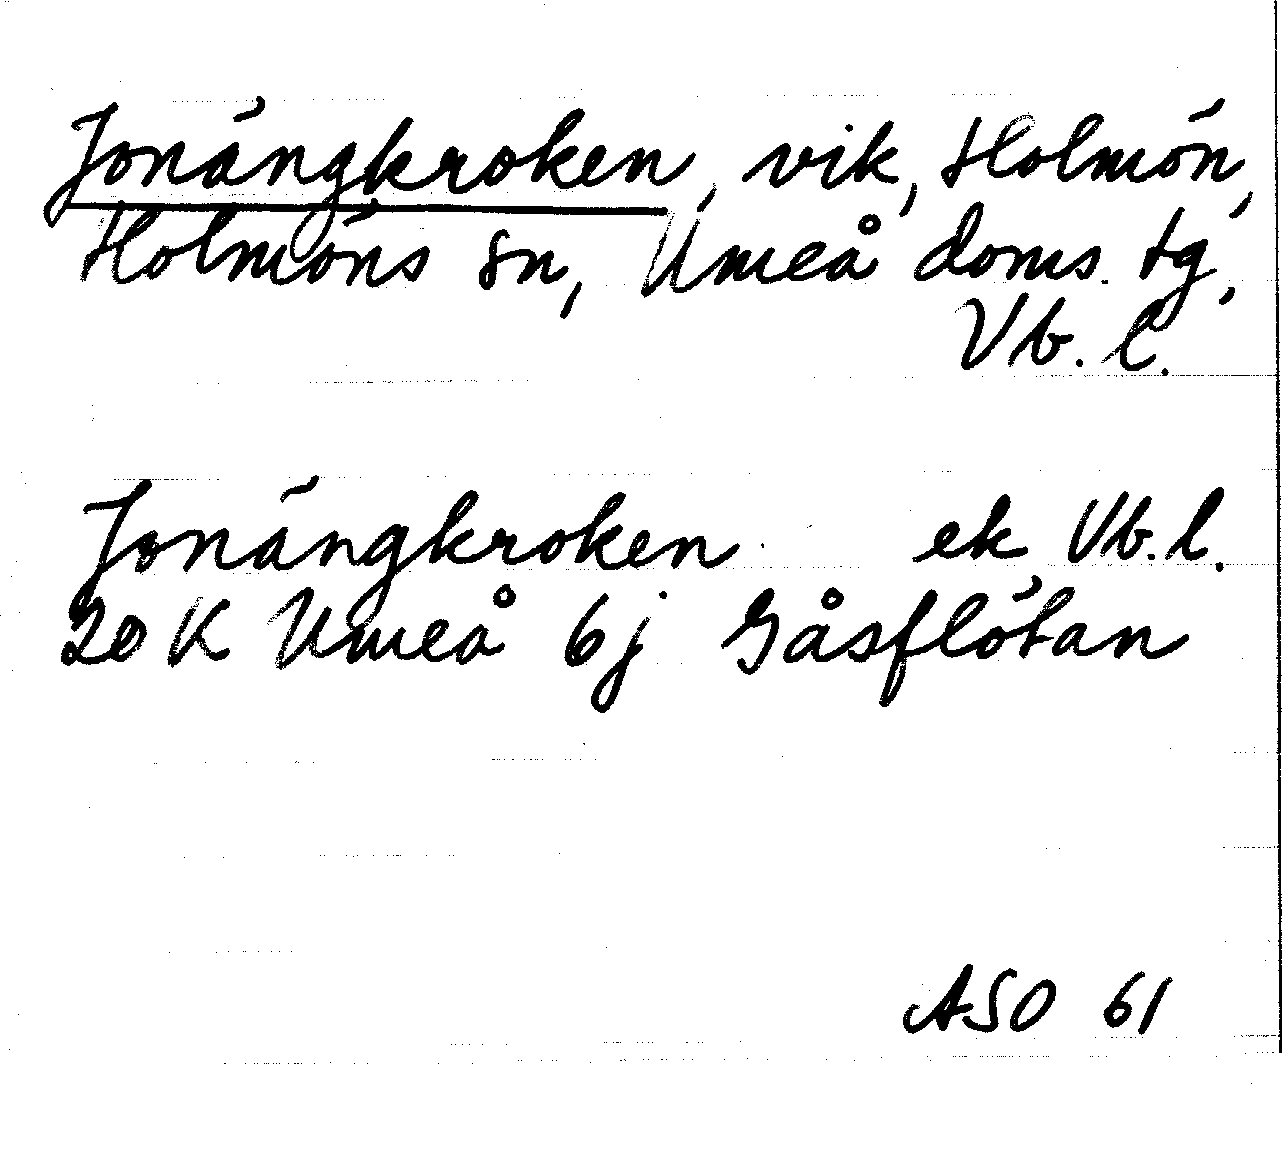 Jonängkroken, vik, Holmön,
Holmöns sn, Umeå doms. tg,
Vb. l.
Jonängkroken ek Vb. l.
20 K Umeå 6j Gåsflötan
ASO 61